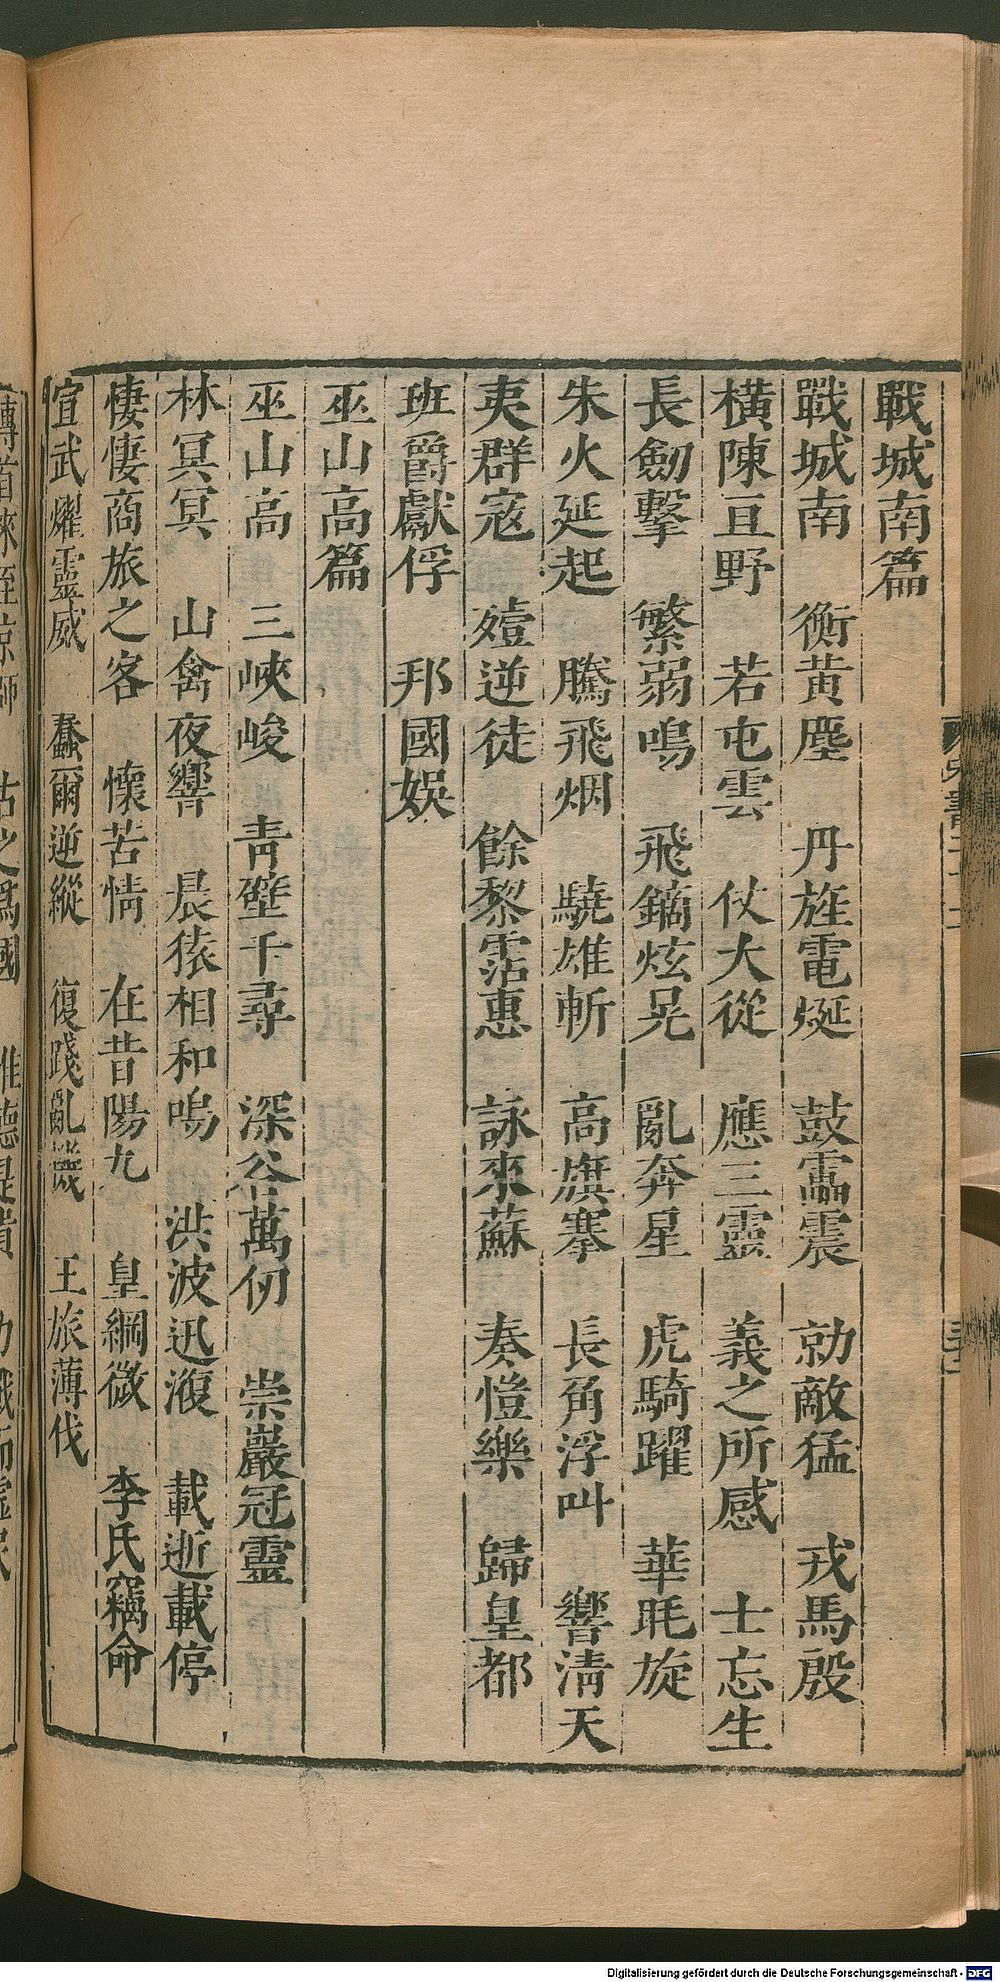 戰城南篇
戰城南　衡黃塵　丹旌電烻　鼓雷震　勍敵猛　戎馬殷
橫陳亘野　若屯雲　仗大從　應三靈　義之所感　士忘生
長劒擊　繁弱鳴　飛鏑炫晃　亂奔星　虎騎躍　華毦旋
朱火延起　騰飛烟　驍雄斬　高旗搴　長角浮叫　響淸天
夷群寇　殪逆徒　餘黎霑惠　詠來蘇　奏愷樂　歸皇都
班爵獻俘　邦國娛
巫山高篇
巫山高　三峽峻　靑壁千尋　深谷萬仞　崇巖冠靈
林冥冥　山禽夜響　晨猿相和鳴　洪波迅澓　載逝載停
悽悽商旅之客　懷苦情　在昔陽九　皇綱微　李氏竊命
宣武燿靈威　蠢爾逆縱　復踐亂機　王旅薄伐
傳首來至京師　古之爲國　惟德是貴　力戰而虛民
Digitalisierung gefördert durch die Deutsche Forschungsgemeinschaft - DFG